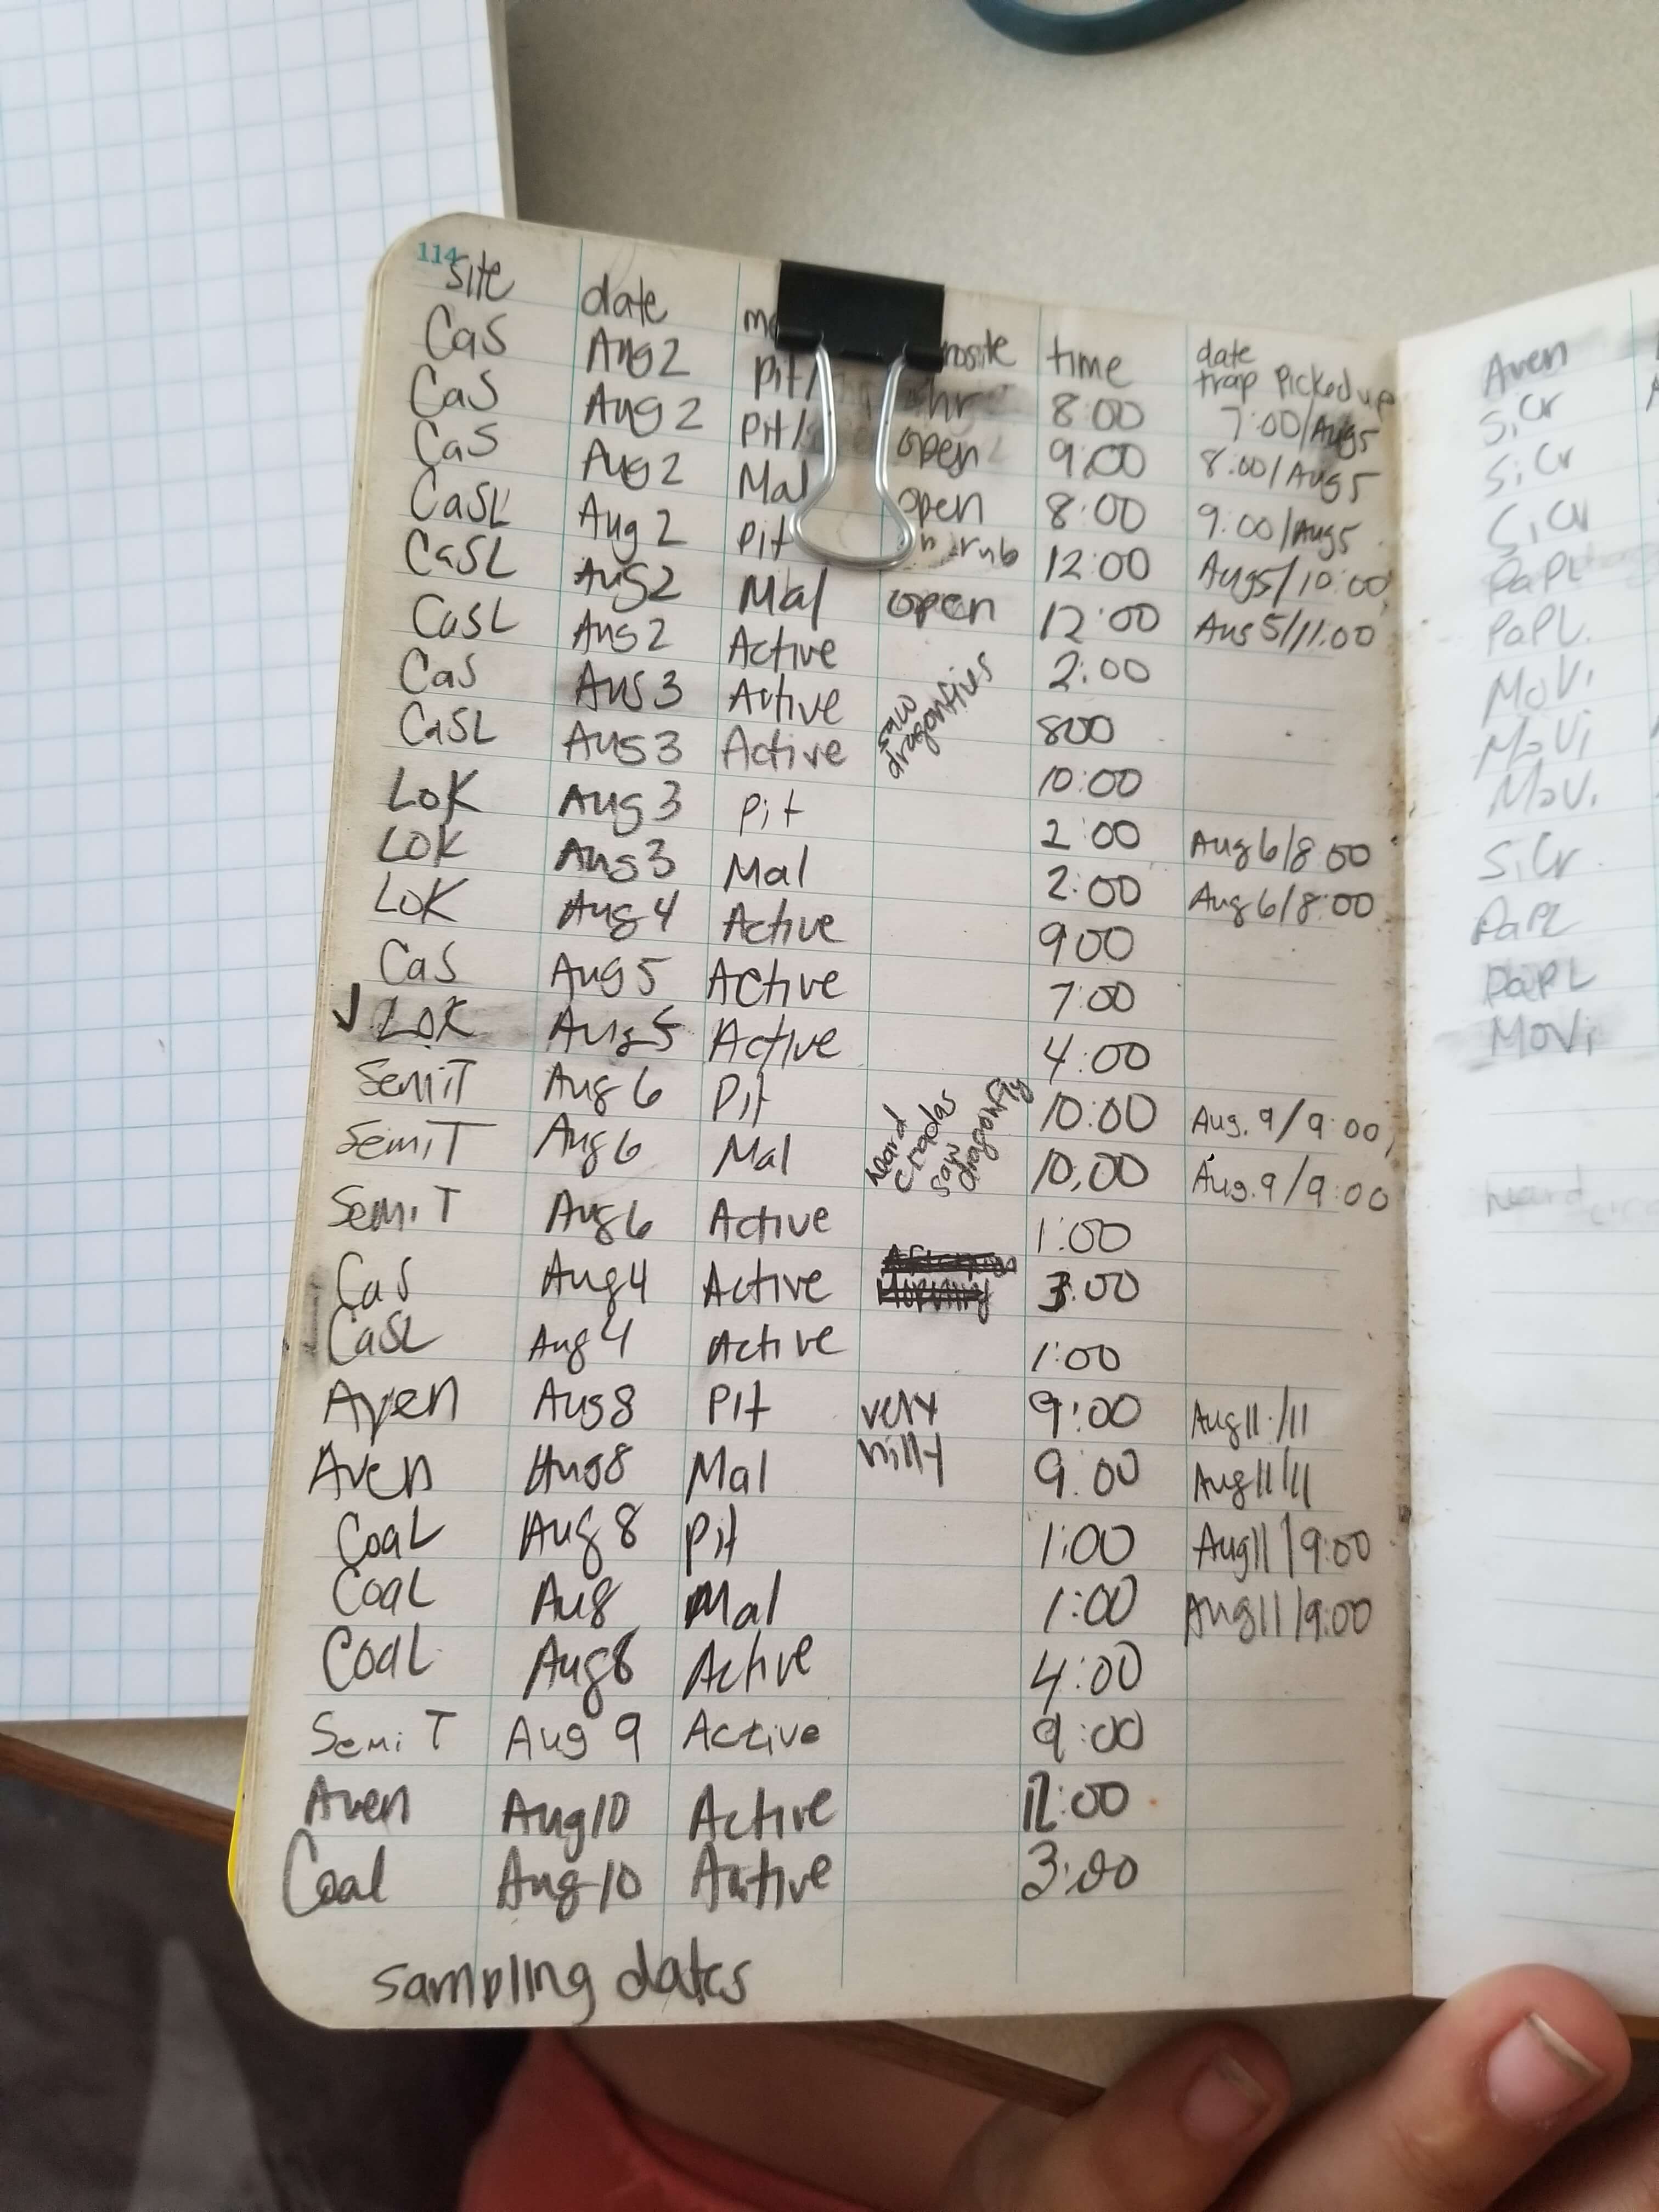 114
site date time date
trap Picked up
CaS Aug 2 Pit/ 8:00 7:00/Aug5
CaS Aug 2 Pit/ open 9:00 8:00/Aug5
CaS Aug 2 Mal open 8:00 9:00/Aug5
CaSL Aug 2 Pit 12:00 Aug5/10:00
CaSL Aug2 Mal open 12:00 Aug 5/11:00
CaSL Aug 2 Active 2:00
CaS Aug 3 Active saw dragonflies 800
CaSL Aug 3 Active 10:00
LoK Aug 3 Pit 2:00 Aug 6/8:00
LOK Aug 3 Mal 2:00 Aug 6/8:00
LoK Aug 4 Active 900
CaS Aug 5 Active 7:00
✓ LoK Aug 5 Active 4:00
SemiT Aug 6 Pit heard cicadas saw dragonfly 10:00 Aug. 9/9:00
SemiT Aug 6 Mal 10:00 Aug. 9/9:00
Semi T Aug 6 Active 1:00
CaS Aug 4 Active 3:00
CaSL Aug 4 Active 1:00
Aven Aug 8 Pit very 9:00 Aug 11/11
hilly
Aven Aug 8 Mal 9:00 Aug 11/11
CoaL Aug 8 Pit 1:00 Aug 11/9:00
CoaL Au8 Mal 1:00 Aug 11/9:00
CoaL Aug 8 Active 4:00
Semi T Aug 9 Active 9:00
Aven Aug 10 Active 12:00
Coal Aug 10 Active 3:00
sampling dates
Aven
SiCr
SiCr
SiCr
PaPL
PaPL
MoVi
MoVi
MoVi
SiCr
PaPL
PaPL
MoVi
heard